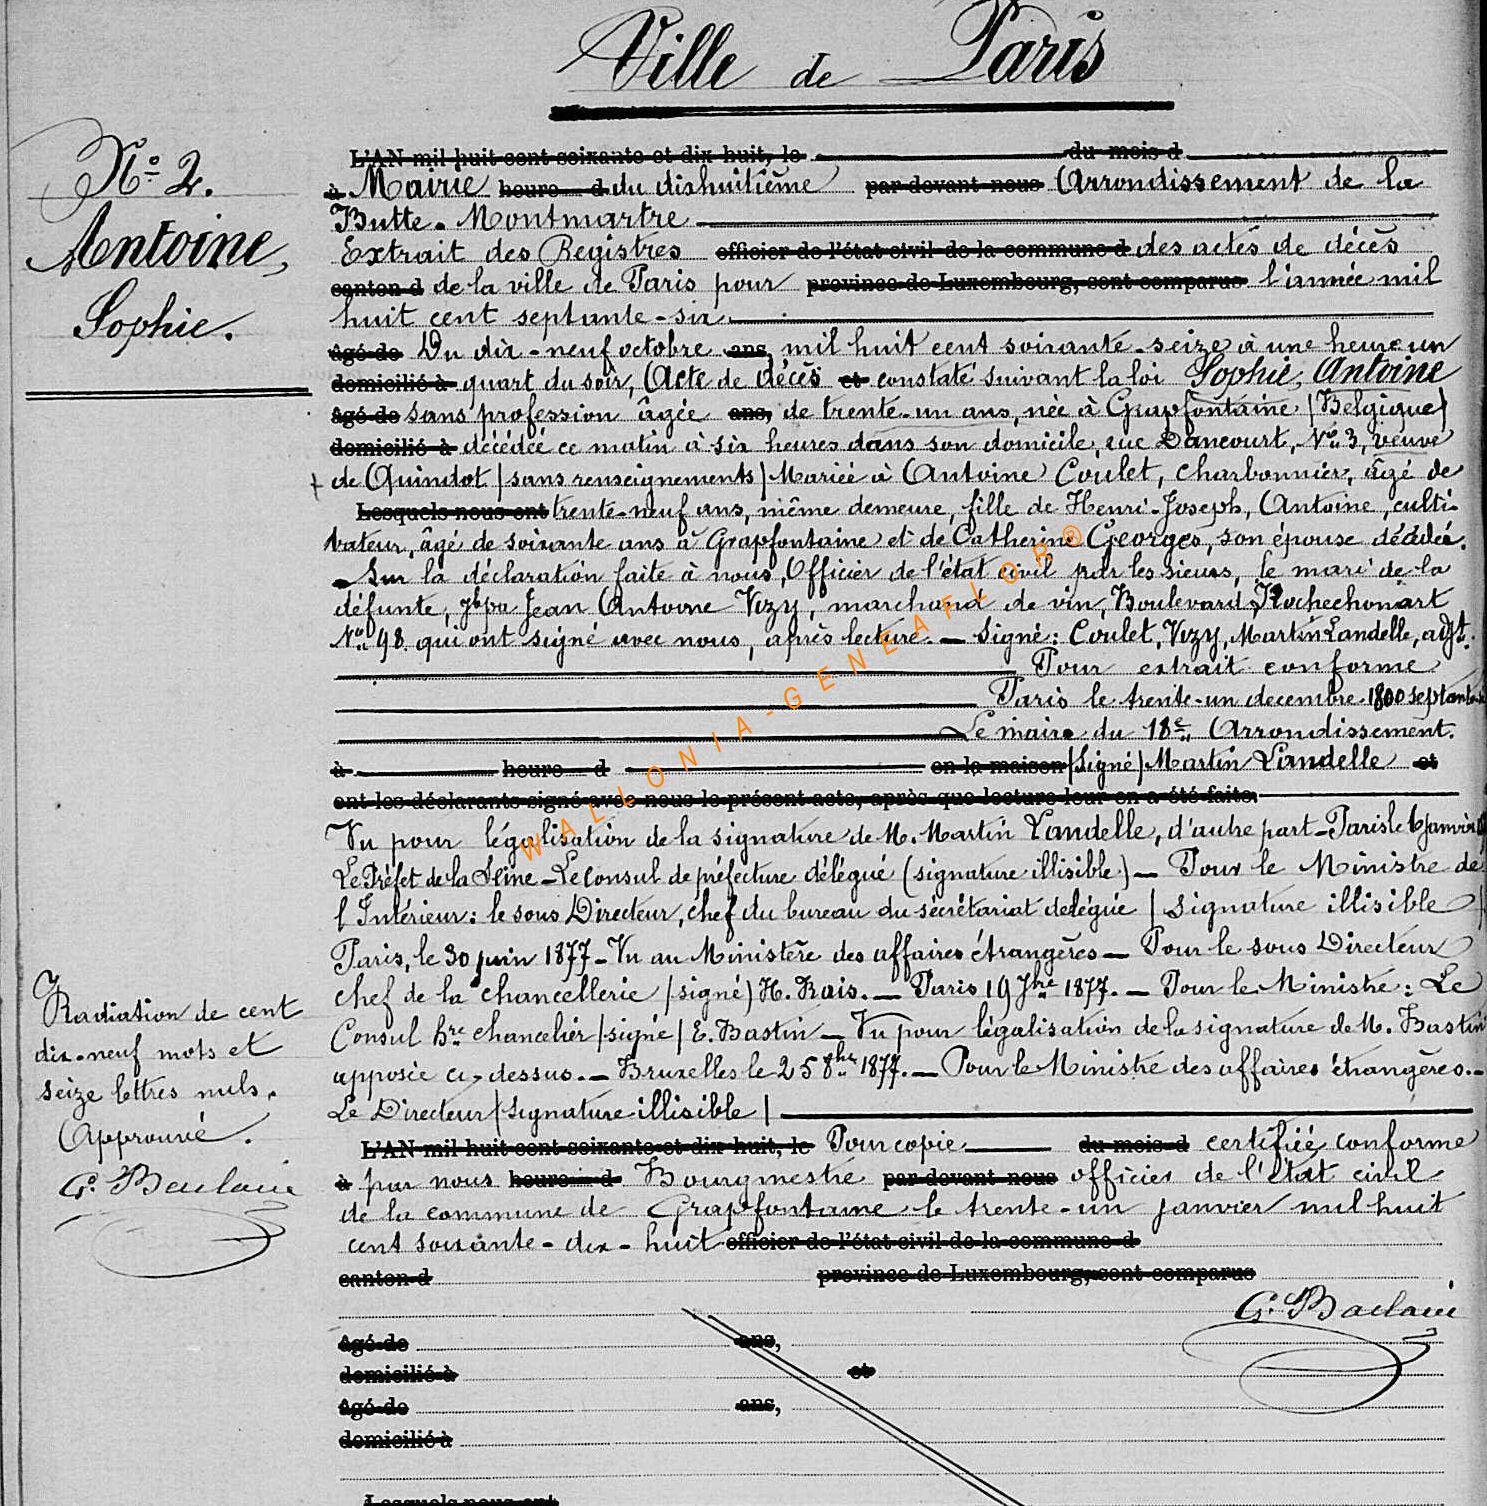 Ville de Paris
N° 2.
Antoine,
Sophie.
L'AN mil huit cent soixante et dix huit, le du mois d
à Mairie heure d du dixhuitième par devant nous Arrondissement de la
Butte-Montmartre
Extrait des Registres officier de l'état civil de la commune d des actes de décès
canton d de la ville de Paris pour province de Luxembourg, sont comparus l'année mil
huit cent septante-six.
âgé de Du dix-neuf octobre ans, mil huit cent soixante-seize à une heure un
domicilié à quart du soir, Acte de décès et constaté suivant la loi Sophie, Antoine
âgé de sans profession âgée ans, de trente-un ans, née à Grapfontaine (Belgique)
domicilié à décédée ce matin à six heures dans son domicile, rue Dancourt, N° 3, veuve
de Quindot (sans renseignements) Mariée à Antoine Coulet, charbonnier, âgé de
Lesquels nous ont trente-neuf ans, même demeure, fille de Henri-Joseph, Antoine, culti-
vateur, âgé de soixante ans à Grapfontaine et de Catherine Georges, son épouse décédée.
- Sur la déclaration faite à nous, Officier de l'état civil par les sieurs, le mari de la
défunte, Jean Antoine Vezy, marchand de vin, Boulevard Rochechouart
N° 98. qui ont signé avec nous, après lecture. - Signé: Coulet, Vezy, Martin Landelle, adjt.
Pour extrait conforme
Paris le trente-un decembre 1800 septante
Le maire du 18e Arrondissement.
à heure d en la maison (Signé) Martin Landelle et
ont les déclarants signé avec nous le présent acte, après que lecture leur en a été faite.
Vu pour légalisation de la signature de M. Martin Landelle, d'autre part - Paris le 6 janvier
Le Préfet de la Seine - Le Consul de préfecture délégué (signature illisible) - Pour le Ministre de
l'Intérieur: le sous Directeur, chef du bureau du sécrétariat delégué (signature illisible)
Paris, le 30 juin 1877 - Vu au Ministère des affaires étrangères - Pour le sous Directeur
chef de la chancellerie (signé) H. Rais. - Paris 19 7bre 1877. - Pour le Ministre: Le
Consul hre chancelier (signé) E. Bastin - Vu pour légalisation de la signature de M. Bastin
apposée ci-dessus. - Bruxelles le 25 8bre 1877. - Pour le Ministre des affaires étrangères. -
Le Directeur (signature illisible)
Radiation de cent
dix-neuf mots et
seize lettres nuls.
Approuvé.
L'AN mil huit cent soixante et dix huit, le Pour copie du mois d certifiée conforme
à par nous heure d Bourgmestre par devant nous officier de l'état civil
de la commune de Grapfontaine le trente-un janvier mil huit
cent soixante-dix-huit officier de l'état civil de la commune d
canton d province de Luxembourg, sont comparus
âgé de ans,
domicilié à et
âgé de ans,
domicilié à
Lesquels nous ont
WALLONIA-GENEAFLOR®